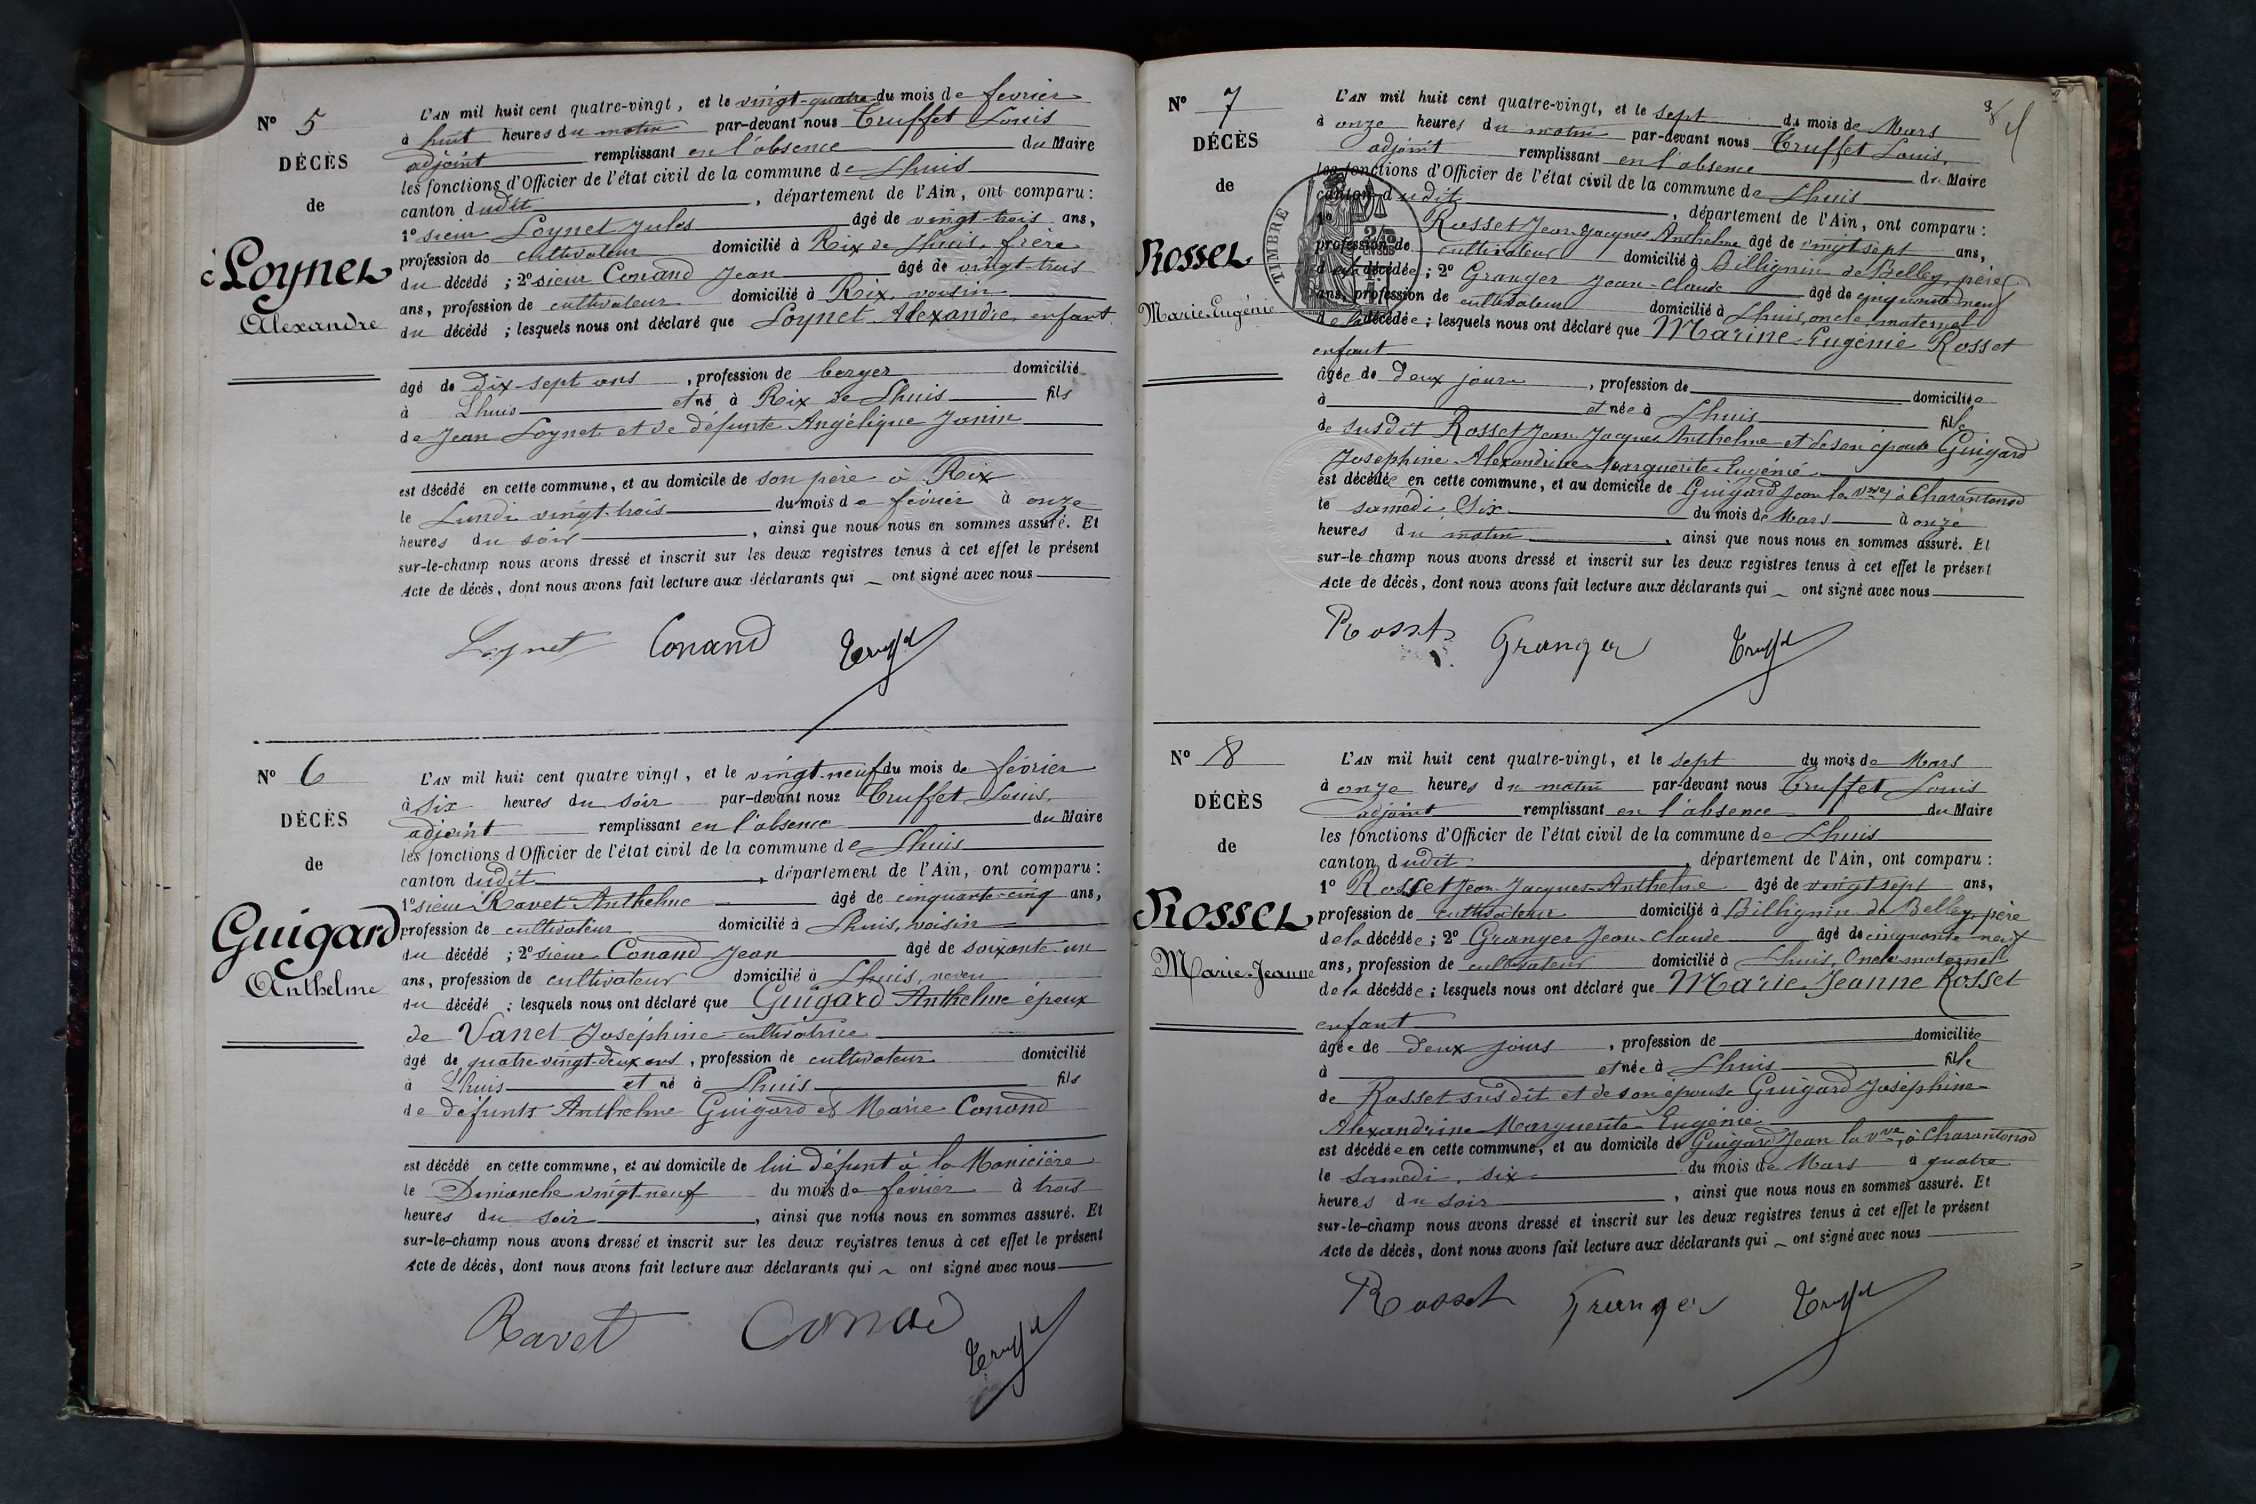 N° 5
DÉCÈS
de
Loynet
Alexandre
L'AN mil huit cent quatre-vingt, et le vingt-quatre du mois de fevrier
à huit heures du matin par-devant nous Truffet Louis
adjoint remplissant en l'absence du Maire
les fonctions d'Officier de l'état civil de la commune de Lhuis
canton dudit, département de l'Ain, ont comparu:
1° sieur Loynet Jules âgé de vingt-trois ans,
profession de cultivateur domicilié à Rix de Lhuis, frère
du décédé ; 2° sieur Conand Jean âgé de vingt-trois
ans, profession de cultivateur domicilié à Rix, voisin
du décédé ; lesquels nous ont déclaré que Loynet Alexandre, enfant
âgé de dix-sept ans, profession de berger domicilié
à Lhuis et né à Rix de Lhuis fils
de Jean Loynet et de défunte Angélique Janin
est décédé en cette commune, et au domicile de son père à Rix
le Lundi vingt-trois du mois de février à onze
heures du soir, ainsi que nous nous en sommes assuré. Et
sur-le-champ nous avons dressé et inscrit sur les deux registres tenus à cet effet le présent
Acte de décès, dont nous avons fait lecture aux déclarants qui ont signé avec nous
Loynet Conand Truffet
N° 6
DÉCÈS
de
Guigard
Anthelme
L'AN mil huit cent quatre vingt, et le vingt-neuf du mois de février
à six heures du soir par-devant nous Truffet Louis,
adjoint remplissant en l'absence du Maire
les fonctions d'Officier de l'état civil de la commune de Lhuis
canton dudit, département de l'Ain, ont comparu:
1° sieur Ravet Anthelme âgé de cinquante-cinq ans,
profession de cultivateur domicilié à Lhuis, voisin
du décédé ; 2° sieur Conand Jean âgé de soixante-un
ans, profession de cultivateur domicilié à Lhuis, neveu
du décédé ; lesquels nous ont déclaré que Guigard Anthelme époux
de Vanet Joséphine cultivatrice
âgé de quatre vingt-deux ans, profession de cultivateur domicilié
à Lhuis et né à Lhuis fils
de défunts Anthelme Guigard et Marie Conand
est décédé en cette commune, et au domicile de lui défunt à la Manicière
le Dimanche vingt-neuf du mois de février à trois
heures du soir, ainsi que nous nous en sommes assuré. Et
sur-le-champ nous avons dressé et inscrit sur les deux registres tenus à cet effet le présent
Acte de décès, dont nous avons fait lecture aux déclarants qui ont signé avec nous
Ravet Conand Truffet
N° 7
DÉCÈS
de
Rosset
Marie-Eugénie
TIMBRE
L'AN mil huit cent quatre-vingt, et le sept du mois de Mars
à onze heures du matin par-devant nous Truffet Louis,
adjoint remplissant en l'absence du Maire
les fonctions d'Officier de l'état civil de la commune de Lhuis
canton dudit, département de l'Ain, ont comparu:
1° Rosset Jean-Jacques Anthelme âgé de vingt sept ans,
profession de cultivateur domicilié à Billignin de Belley, père
de la décédée ; 2° Granger Jean-Claude âgé de cinquante neuf
ans, profession de cultivateur domicilié à Lhuis, oncle maternel
de la décédée ; lesquels nous ont déclaré que Marine-Eugénie Rosset
enfant
âgée de deux jours, profession de domiciliée
à et née à Lhuis fille
de susdit Rosset Jean Jacques Anthelme et de son épouse Guigard
Josephine-Alexandrine Marguerite Eugénie
est décédée en cette commune, et au domicile de Guigard Jean la vve, à Charantonod
le samedi Six du mois de Mars à onze
heures du matin, ainsi que nous nous en sommes assuré. Et
sur-le champ nous avons dressé et inscrit sur les deux registres tenus à cet effet le présent
Acte de décès, dont nous avons fait lecture aux déclarants qui ont signé avec nous
Rosset Granger Truffet
N° 8
DÉCÈS
de
Rosset
Marie-Jeanne
L'AN mil huit cent quatre-vingt, et le sept du mois de Mars
à onze heures du matin par-devant nous Truffet Louis
adjoint remplissant en l'absence du Maire
les fonctions d'Officier de l'état civil de la commune de Lhuis
canton dudit, département de l'Ain, ont comparu :
1° Rosset Jean-Jacques-Anthelme âgé de vingt sept ans,
profession de cultivateur domicilié à Billignin de Belley, père
de la décédée ; 2° Granger Jean-Claude âgé de cinquante neuf
ans, profession de cultivateur domicilié à Lhuis, Oncle maternel
de la décédée ; lesquels nous ont déclaré que Marie-Jeanne Rosset
enfant
âgée de deux jours, profession de domiciliée
à et née à Lhuis fille
de Rosset susdit et de son épouse Guigard Joséphine
Alexandrine Marguerite Eugénie
est décédée en cette commune, et au domicile de Guigard Jean la vve, à Charantonod
le samedi, six du mois de Mars à quatre
heures du soir, ainsi que nous nous en sommes assuré. Et
sur-le-champ nous avons dressé et inscrit sur les deux registres tenus à cet effet le présent
Acte de décès, dont nous avons fait lecture aux déclarants qui ont signé avec nous
Rosset Granger Truffet